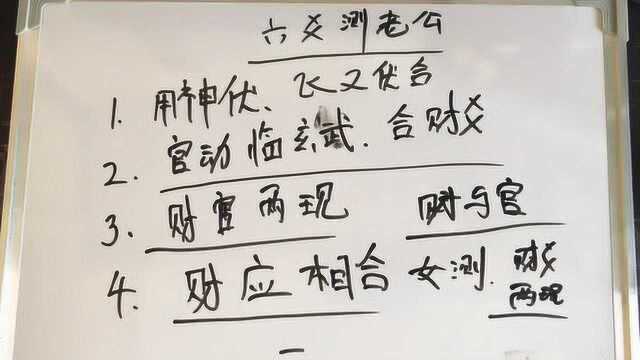 六爻测老公
1. 用神伏、飞又伏合
2. 官动临玄武.合财爻
3. 财官两现 财与官
4. 财应相合 女测.财爻
两现